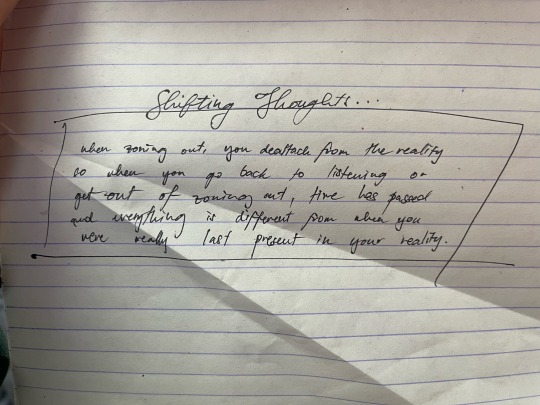 Shifting Thoughts...
when zoning out, you deattach from the reality
so when you go back to listening or
get out of zoning out, time has passed
and everything is different from when you
were really last present in your reality.